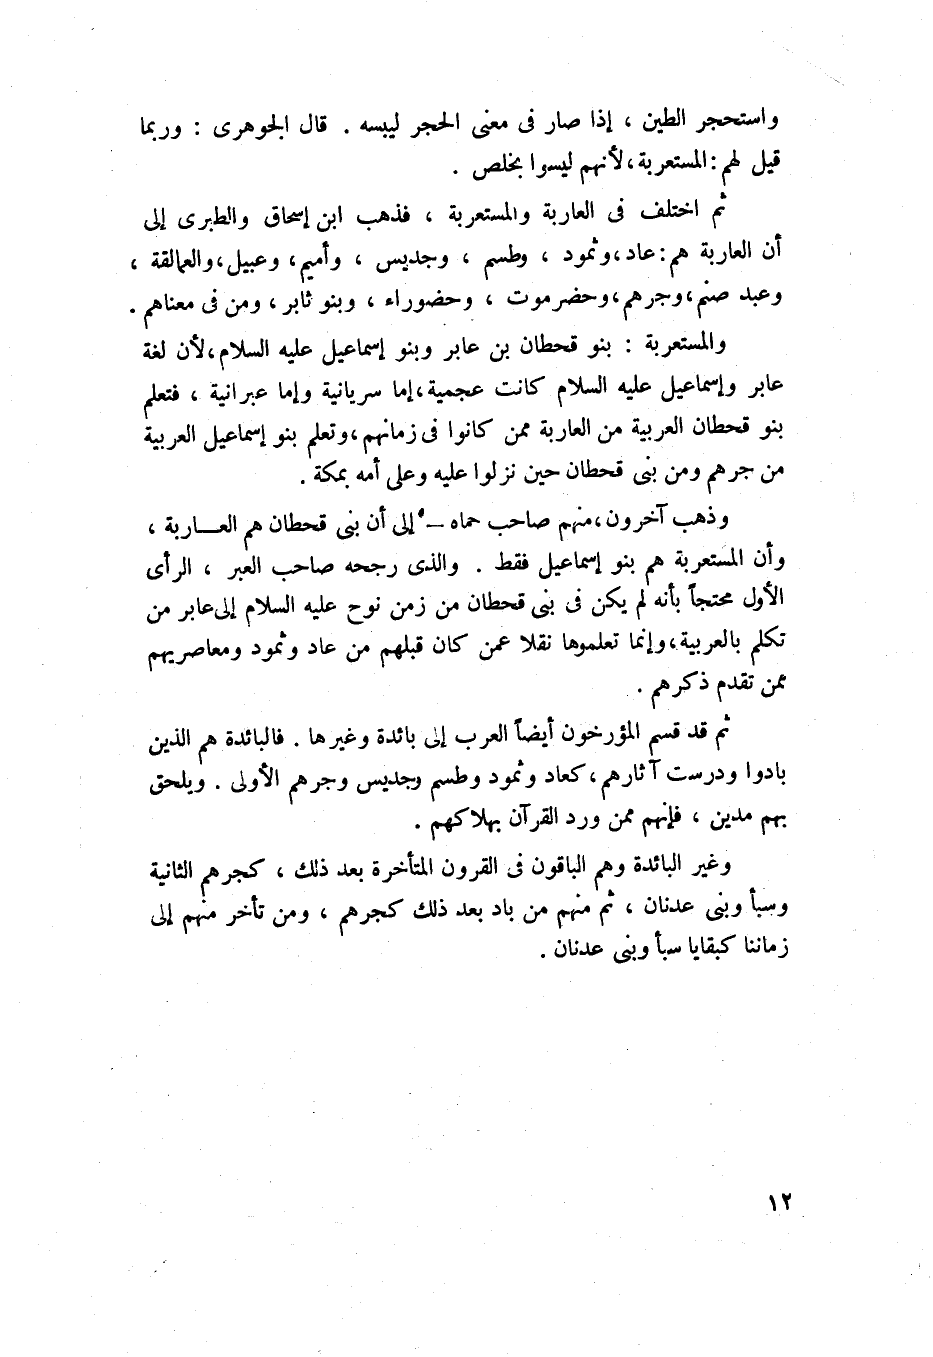 واستحجر الطين ، إذا صار فى معنى الحجر ليبسه . قال الجوهرى : وربما
قيل لهم : المستعربة ، لأنهم ليسوا بخلص .
ثم اختلف فى العاربة والمستعربة ، فذهب ابن إسحاق والطبرى إلى
أن العاربة هم : عاد ، وثمود ، وطسم ، وجديس ، وأميم ، وعبيل ، والعمالقة ،
وعبد ضخم ، وجرهم ، وحضرموت ، وحضوراء ، وبنو ثابر ، ومن فى معناهم .
والمستعربة : بنو قحطان بن عابر وبنو إسماعيل عليه السلام ، لأن لغة
عابر وإسماعيل عليه السلام كانت عجمية ، إما سريانية وإما عبرانية ، فتعلم
بنو قحطان العربية من العاربة ممن كانوا فى زمانهم ، وتعلم بنو إسماعيل العربية
من جرهم ومن بنى قحطان حين نزلوا عليه وعلى أمه بمكة .
وذهب آخرون ، منهم صاحب حماه – إلى أن بنى قحطان هم العـــاربة ،
وأن المستعربة هم بنو إسماعيل فقط . والذى رجحه صاحب العبر ، الرأى
الأول محتجاً بأنه لم يكن فى بنى قحطان من زمن نوح عليه السلام إلى عابر من
تكلم بالعربية ، وإنما تعلموها نقلا عمن كان قبلهم من عاد وثمود ومعاصريهم
ممن تقدم ذكرهم .
ثم قد قسم المؤرخون أيضاً العرب إلى بائدة وغيرها . فالبائدة هم الذين
بادوا ودرست آثارهم ، كعاد وثمود وطسم وجديس وجرهم الأولى . ويلحق
بهم مدين ، فإنهم ممن ورد القرآن بهلاكهم .
وغير البائدة وهم الباقون فى القرون المتأخرة بعد ذلك ، كجرهم الثانية
وسبأ وبنى عدنان ، ثم منهم من باد بعد ذلك كجرهم ، ومن تأخر منهم إلى
زماننا كبقايا سبأ وبنى عدنان .
١٢